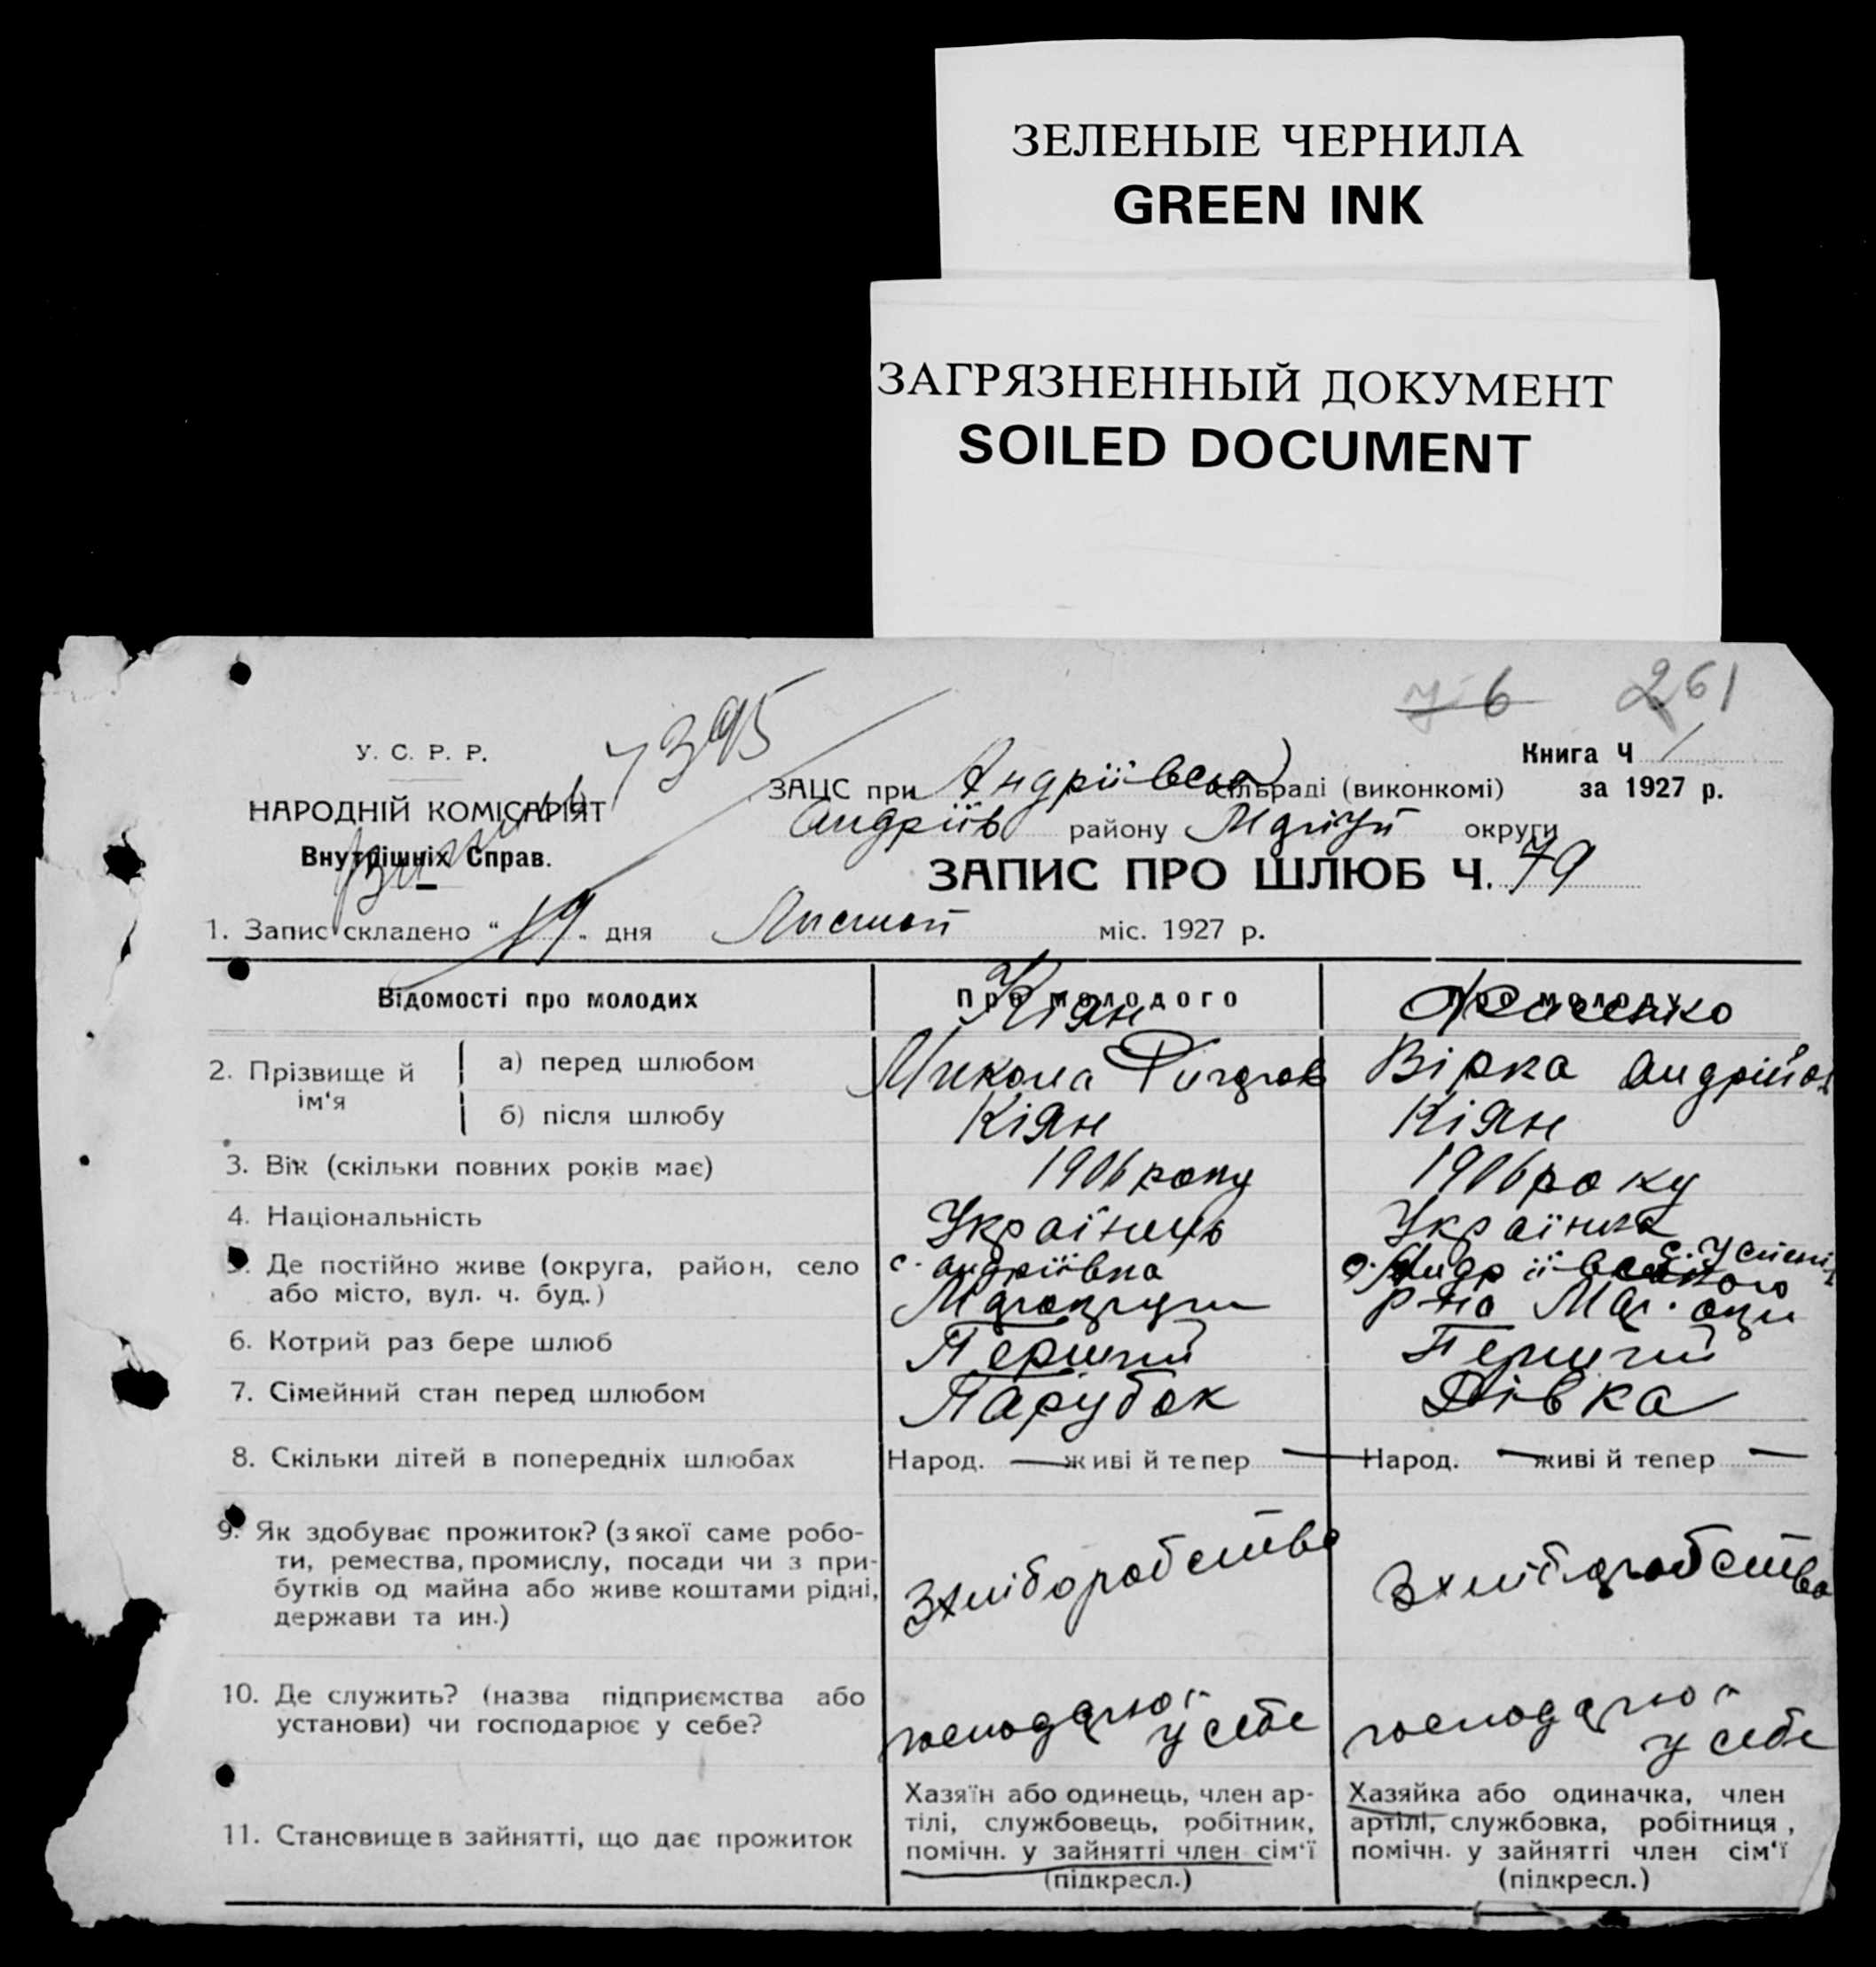 ЗЕЛЕНЫЕ ЧЕРНИЛА
GREEN INK
ЗАГРЯЗНЕННЫЙ ДОКУМЕНТ
SOILED DOCUMENT
76 261
7395
У. С. Р. Р.
НАРОДНІЙ КОМІСАРІЯТ
Внутрішніх Справ.
Книга Ч 1
за 1927 р.
ЗАЦС при Андріївськ сільраді (виконкомі)
Андріїв району Маріуп округи
ЗАПИС ПРО ШЛЮБ Ч. 79
1. Запис складено “ 19 „ дня Листоп міс. 1927 р.
Відомості про молодих
Про молодого
Про молоду
Кіян
2. Прізвище й ім‘я
а) перед шлюбом
Микола
Вірка Андрійов
б) після шлюбу
Кіян
Кіян
3. Вік (скільки повних років має)
1906 року
1906 року
4. Національність
Українець
Українка
5. Де постійно живе (округа, район, село
або місто, вул. ч. буд.)
с. Андріївка
р-на Мар. окр
6. Котрий раз бере шлюб
Перший
Перший
7. Сімейний стан перед шлюбом
Парубок
Дівка
8. Скільки дітей в попередніх шлюбах
Народ. — живі й тепер —
Народ. — живі й тепер —
9. Як здобуває прожиток? (з якої саме робо-
ти, ремества, промислу, посади чи з при-
бутків од майна або живе коштами рідні,
держави та ин.)
З хліборобства
З хліборобства
10. Де служить? (назва підприємства або
установи) чи господарює у себе?
господарює
у себе
господарює
у себе
11. Становище в зайнятті, що дає прожиток
Хазяїн або одинець, член ар-
тілі, службовець, робітник,
помічн. у зайнятті член сім‘ї
(підкресл.)
Хазяйка або одиначка, член
артілі, службовка, робітниця,
помічн. у зайнятті член сім‘ї
(підкресл.)